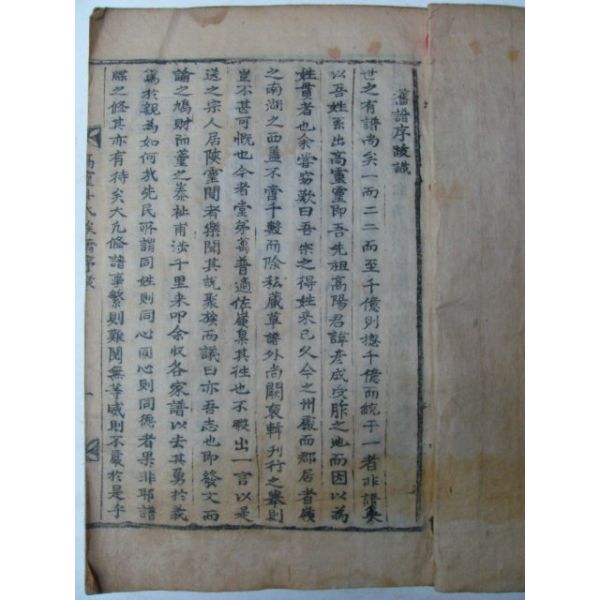 舊譜序跋識
世之有譜尚矣一而二二而至千億則揔千億而統于一者非譜奚
以吾姓系出高靈靈即吾先祖高陽君諱彦成受胙之地而因以爲
姓貫者也余嘗窃歎曰吾宗之得姓來已久今之州處而郡居者嶺
之南湖之西盖不啻千數而除私藏草譜外尚闕裒輯刊行之擧則
豈不甚可慨也今者堂弟普適佐嶺集其徃也不暇出一言以是
送之宗人居陜靈間者樂聞其說聚族而議曰亦吾志也即發文而
諭之鳩財而董之泰祉甫涉千里来叩余收各家譜以去其勇於義
篤於親爲如何我先民所謂同姓則同心同心則同德者果非耶譜
牒之修其亦有待矣大凢修譜事繁則難閱無等威則不嚴於是乎
高靈朴氏族譜序跋
一